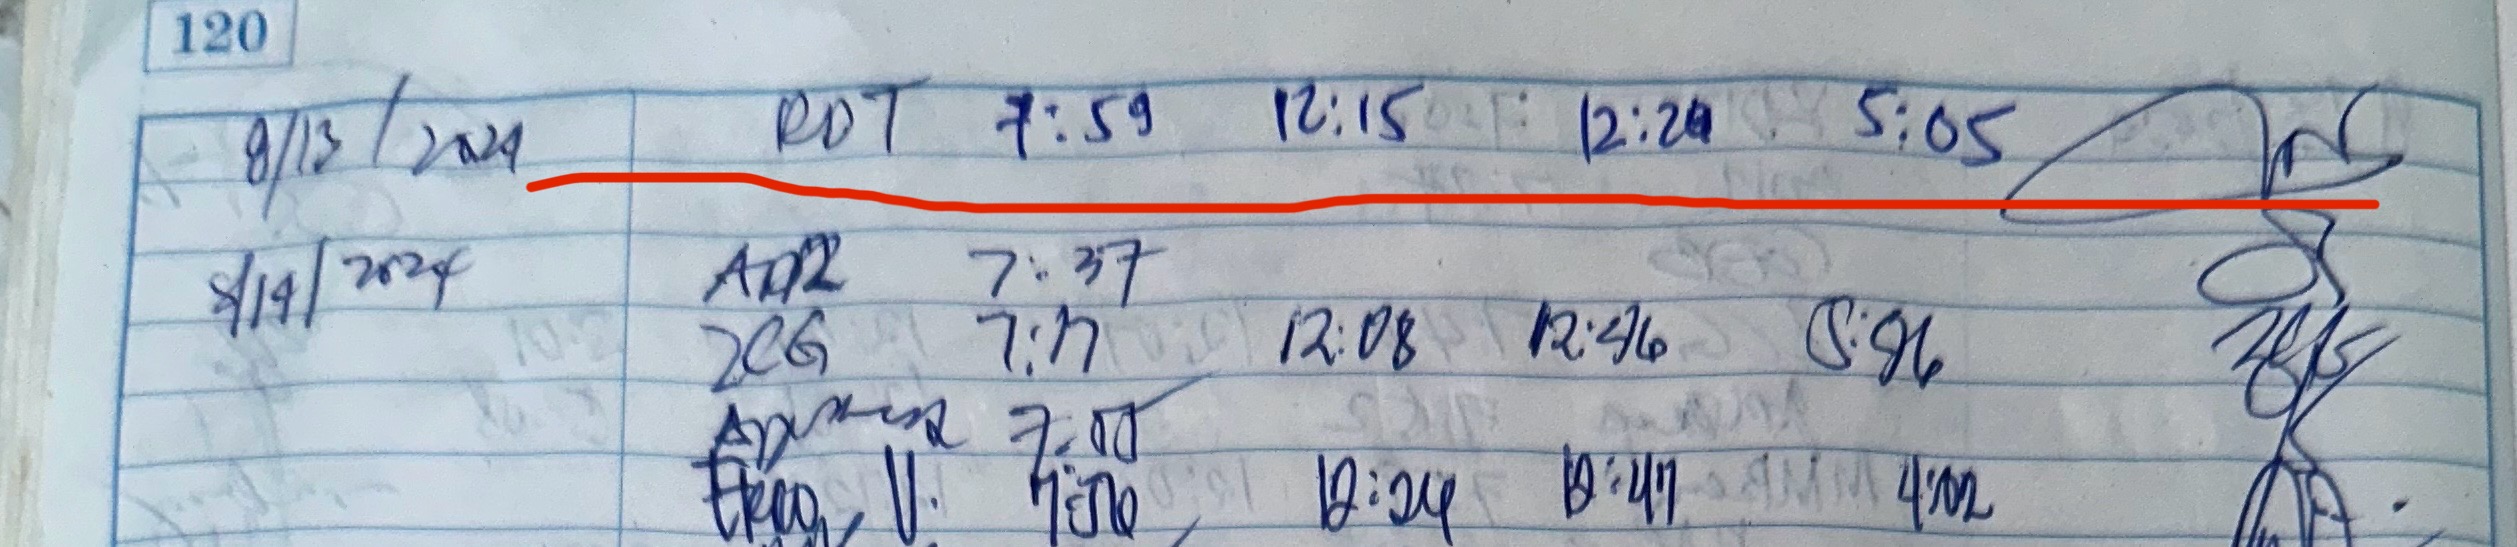 120
8/13/2024 RDT 7:59 12:15 12:20 5:05
8/14/2024 7:37
JCG 7:17 12:08 12:46 5:46
7:55
V. 12:24 12:47 4:02